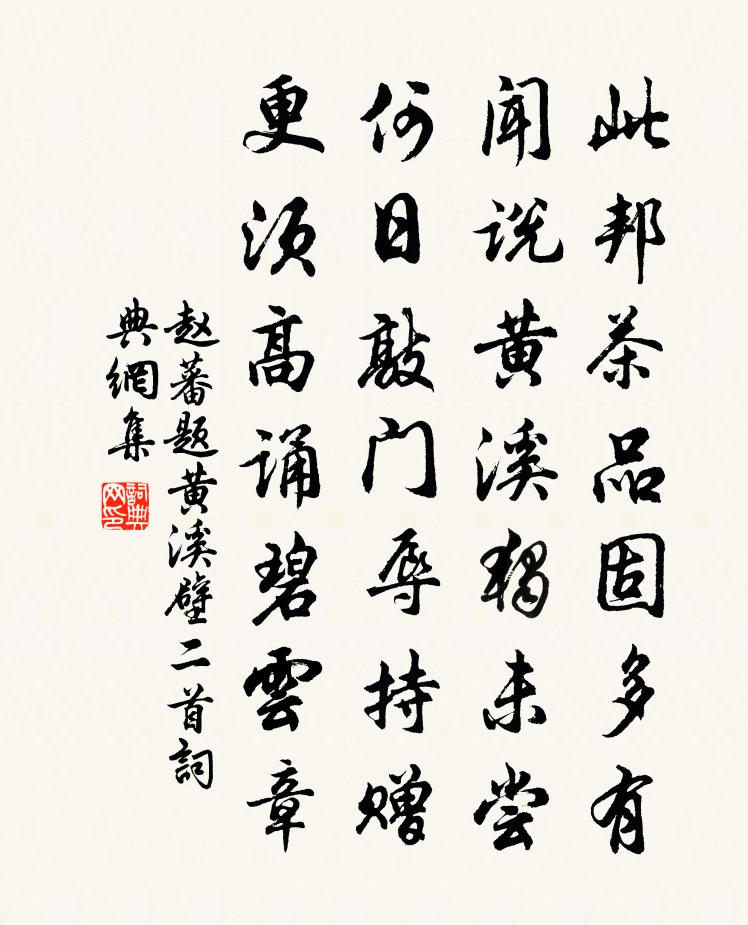 此邦茶品固多有
闻说黄溪独未尝
何日敲门辱持赠
更须高诵碧雲章
赵蕃题黄溪壁二首詞
典網集
詞典网印